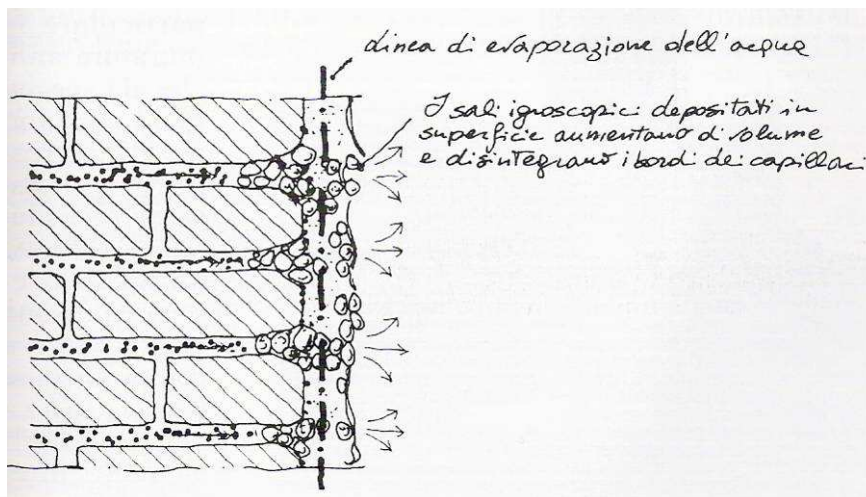 linea di evaporazione dell'acqua
I sali igroscopici depositati in
superficie aumentano di volume
e disintegrano i bordi dei capillari